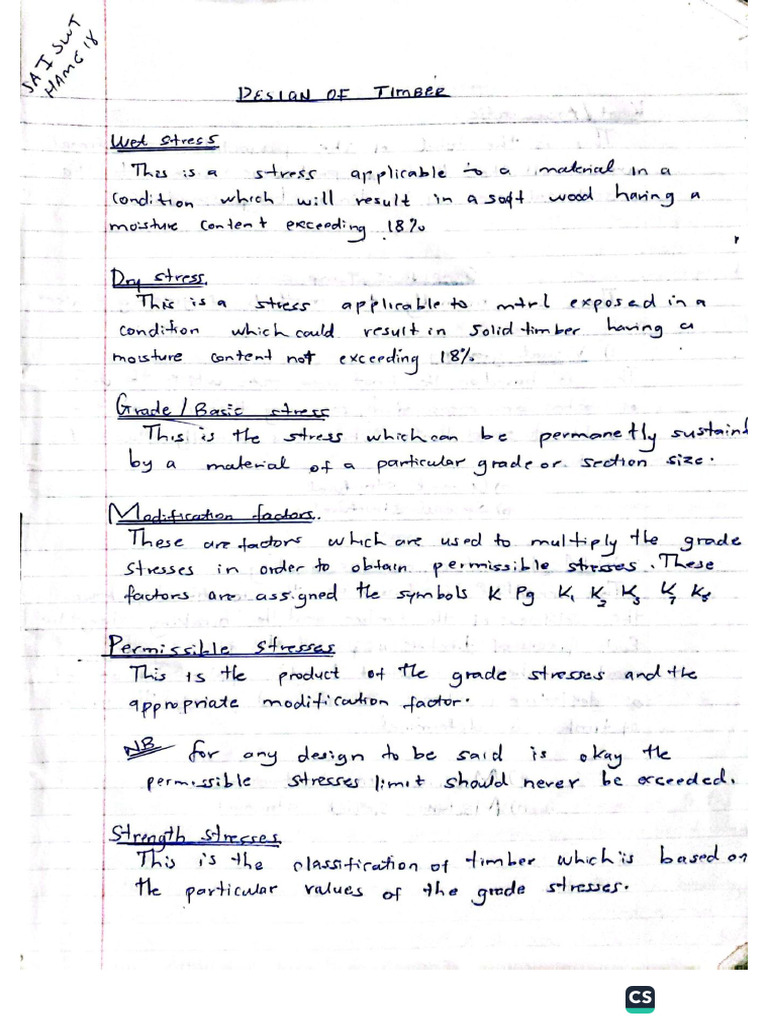 DESIGN OF TIMBER
Wet stress
This is a stress applicable to a material in a
condition which will result in a soft wood having a
moisture content exceeding 18%
Dry stress.
This is a stress applicable to mtrl exposed in a
condition which could result in solid timber having a
moisture content not exceeding 18%.
Grade / Basic stress
This is the stress which can be permanetly sustain
by a material of a particular grade or section size.
Modification factors.
These are factors which are used to multiply the grade
stresses in order to obtain permissible stresses. These
factors are assigned the symbols K Pg K1 K2 K3 K7 K8
Permissible stresses
This is the product of the grade stresses and the
appropriate modification factor.
NB for any design to be said is okay the
permissible stresses limit should never be exceeded.
Strength stresses
This is the classification of timber which is based on
the particular values of the grade stresses.
CS